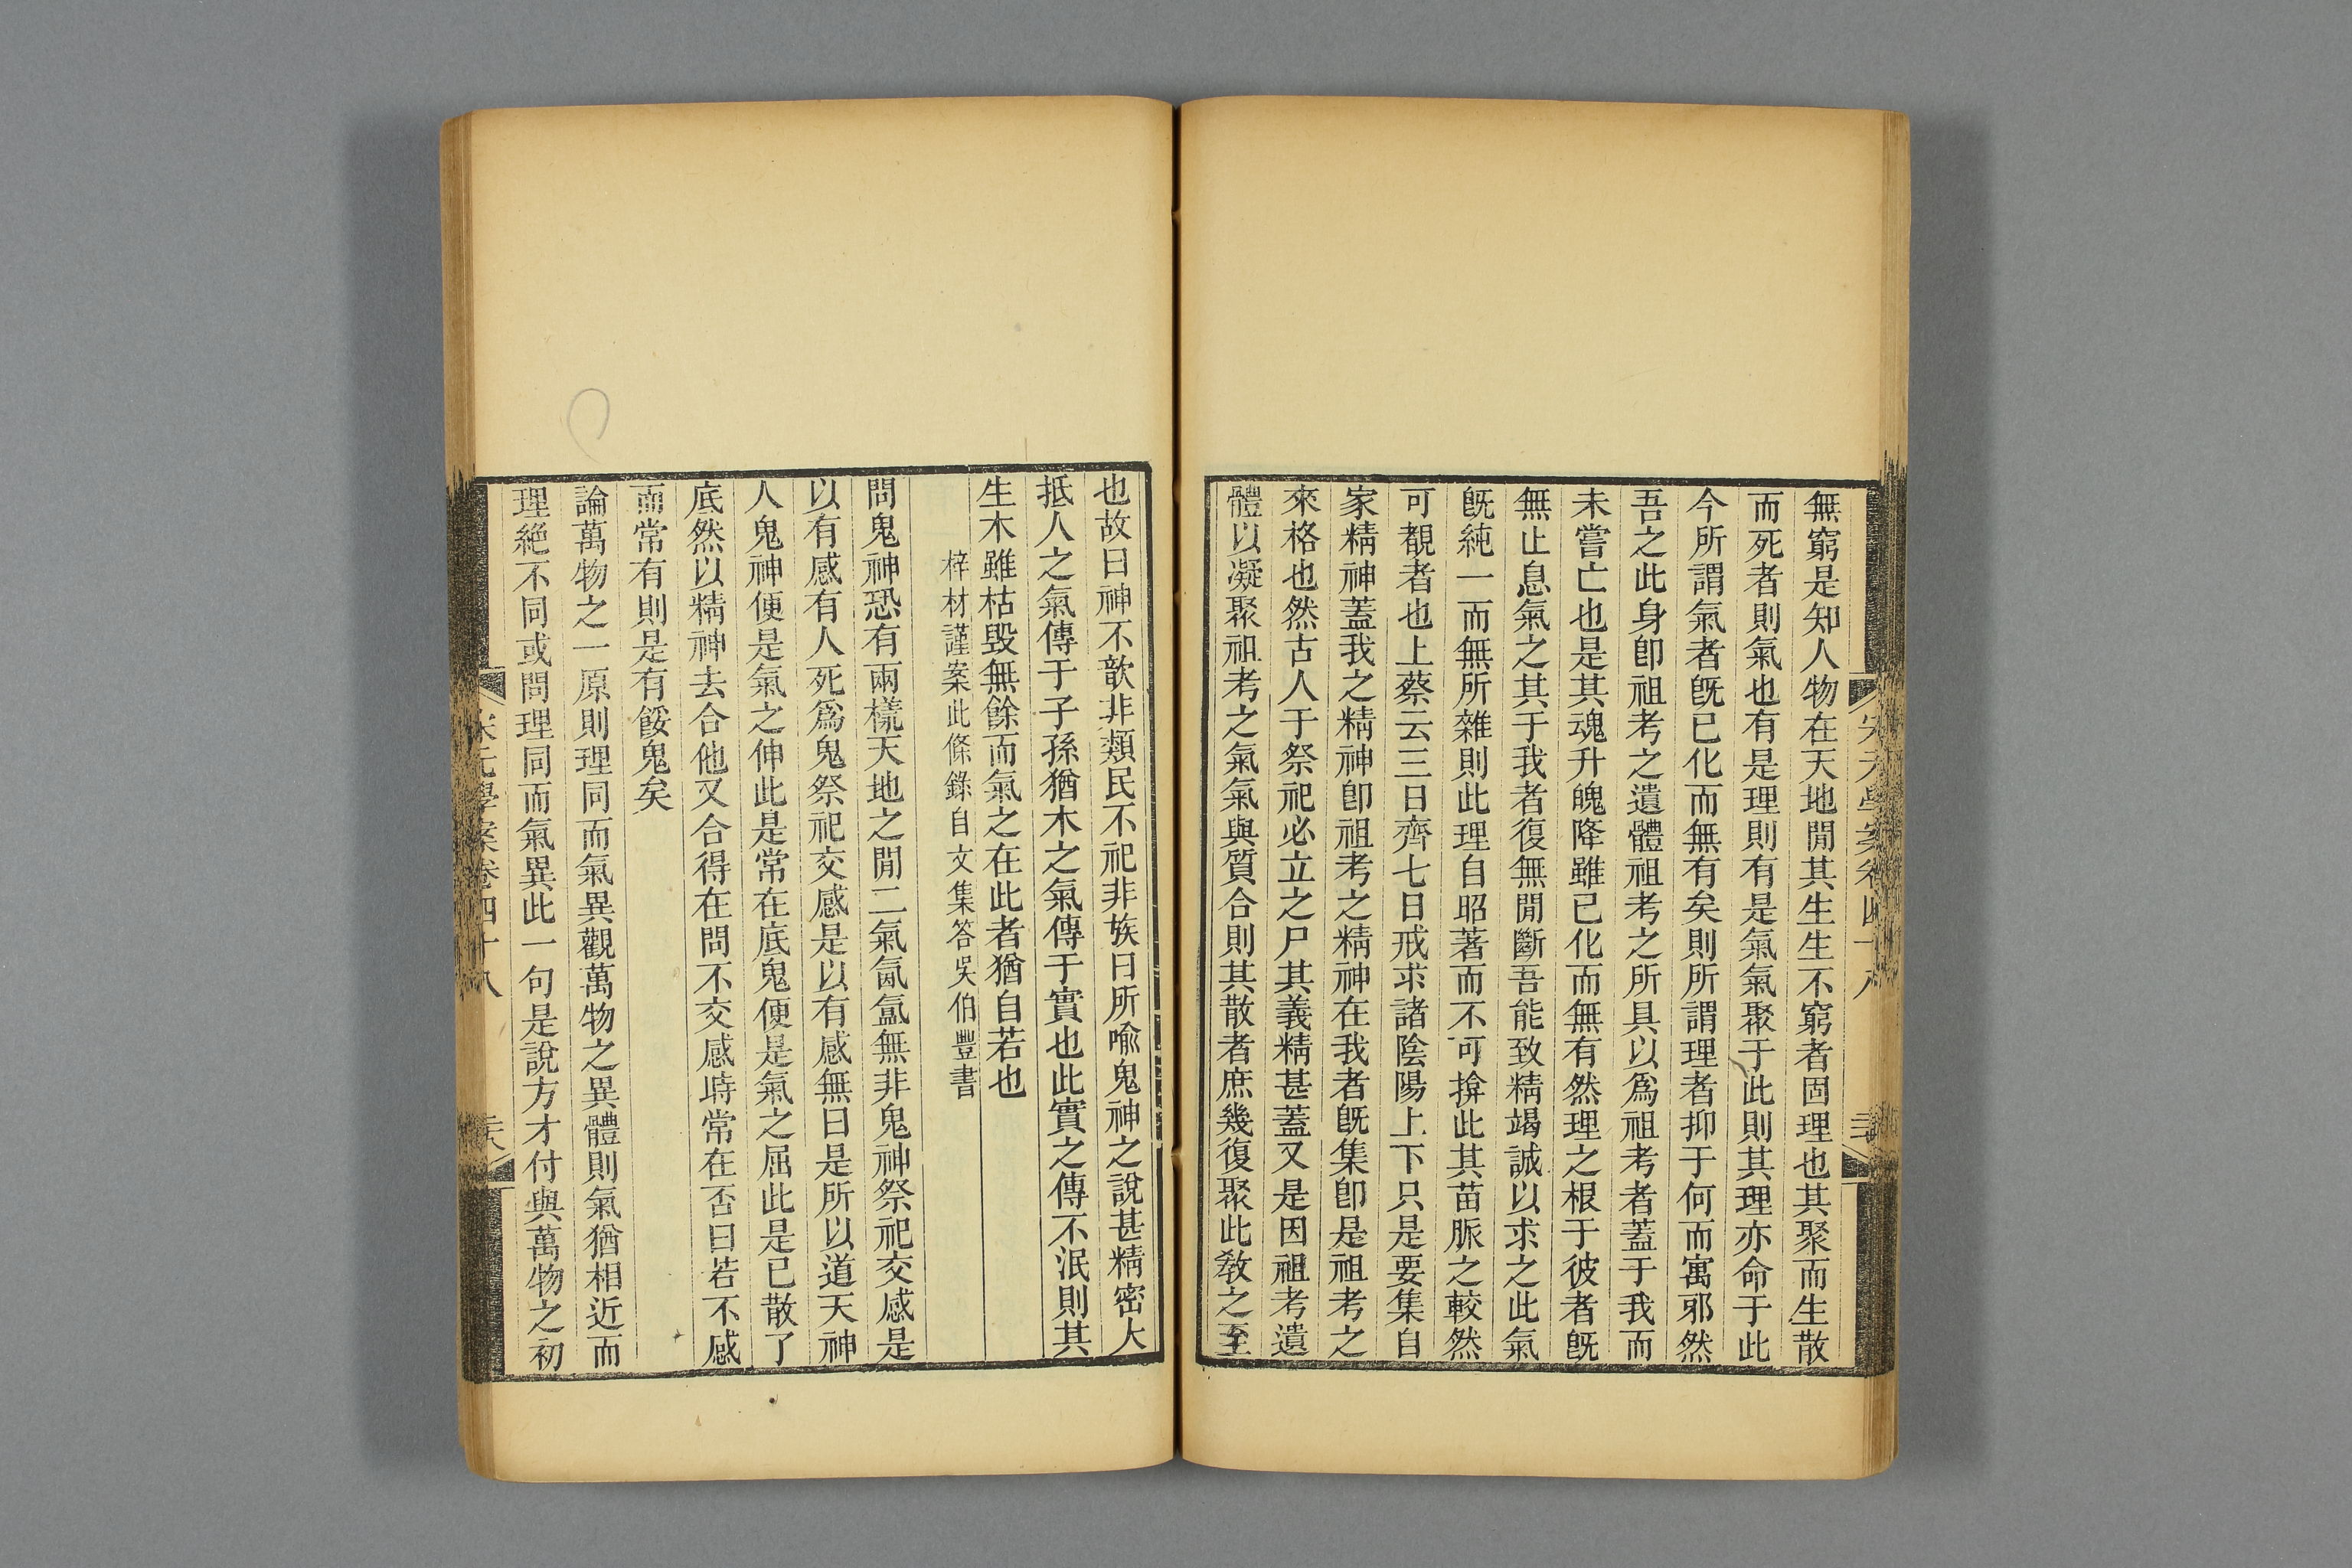 無窮是知人物在天地閒其生生不窮者固理也其聚而生散
而死者則氣也有是理則有是氣氣聚于此則其理亦命于此
今所謂氣者旣已化而無有矣則所謂理者抑于何而寓邪然
吾之此身卽祖考之遺體祖考之所具以爲祖考者蓋于我而
未嘗亡也是其魂升魄降雖已化而無有然理之根于彼者旣
無止息氣之其于我者復無閒斷吾能致精竭誠以求之此氣
旣純一而無所雜則此理自昭著而不可揜此其苗脈之較然
可覩者也上蔡云三日齊七日戒求諸陰陽上下只是要集自
家精神蓋我之精神卽祖考之精神在我者旣集卽是祖考之
來格也然古人于祭祀必立之尸其義精甚蓋又是因祖考遺
體以凝聚祖考之氣氣與質合則其散者庶幾復聚此敎之至
也故曰神不歆非類民不祀非族曰所喻鬼神之說甚精密大
抵人之氣傳于子孫猶木之氣傳于實也此實之傳不泯則其
生木雖枯毀無餘而氣之在此者猶自若也
梓材謹案此條錄自文集答吳伯豐書
問鬼神恐有兩樣天地之閒二氣氤氳無非鬼神祭祀交感是
以有感有人死爲鬼祭祀交感是以有感無曰是所以道天神
人鬼神便是氣之伸此是常在底鬼便是氣之屈此是已散了
底然以精神去合他又合得在問不交感時常在否曰若不感
而常有則是有餒鬼矣
論萬物之一原則理同而氣異觀萬物之異體則氣猶相近而
理絶不同或問理同而氣異此一句是說方才付與萬物之初
宋元學案卷四十八